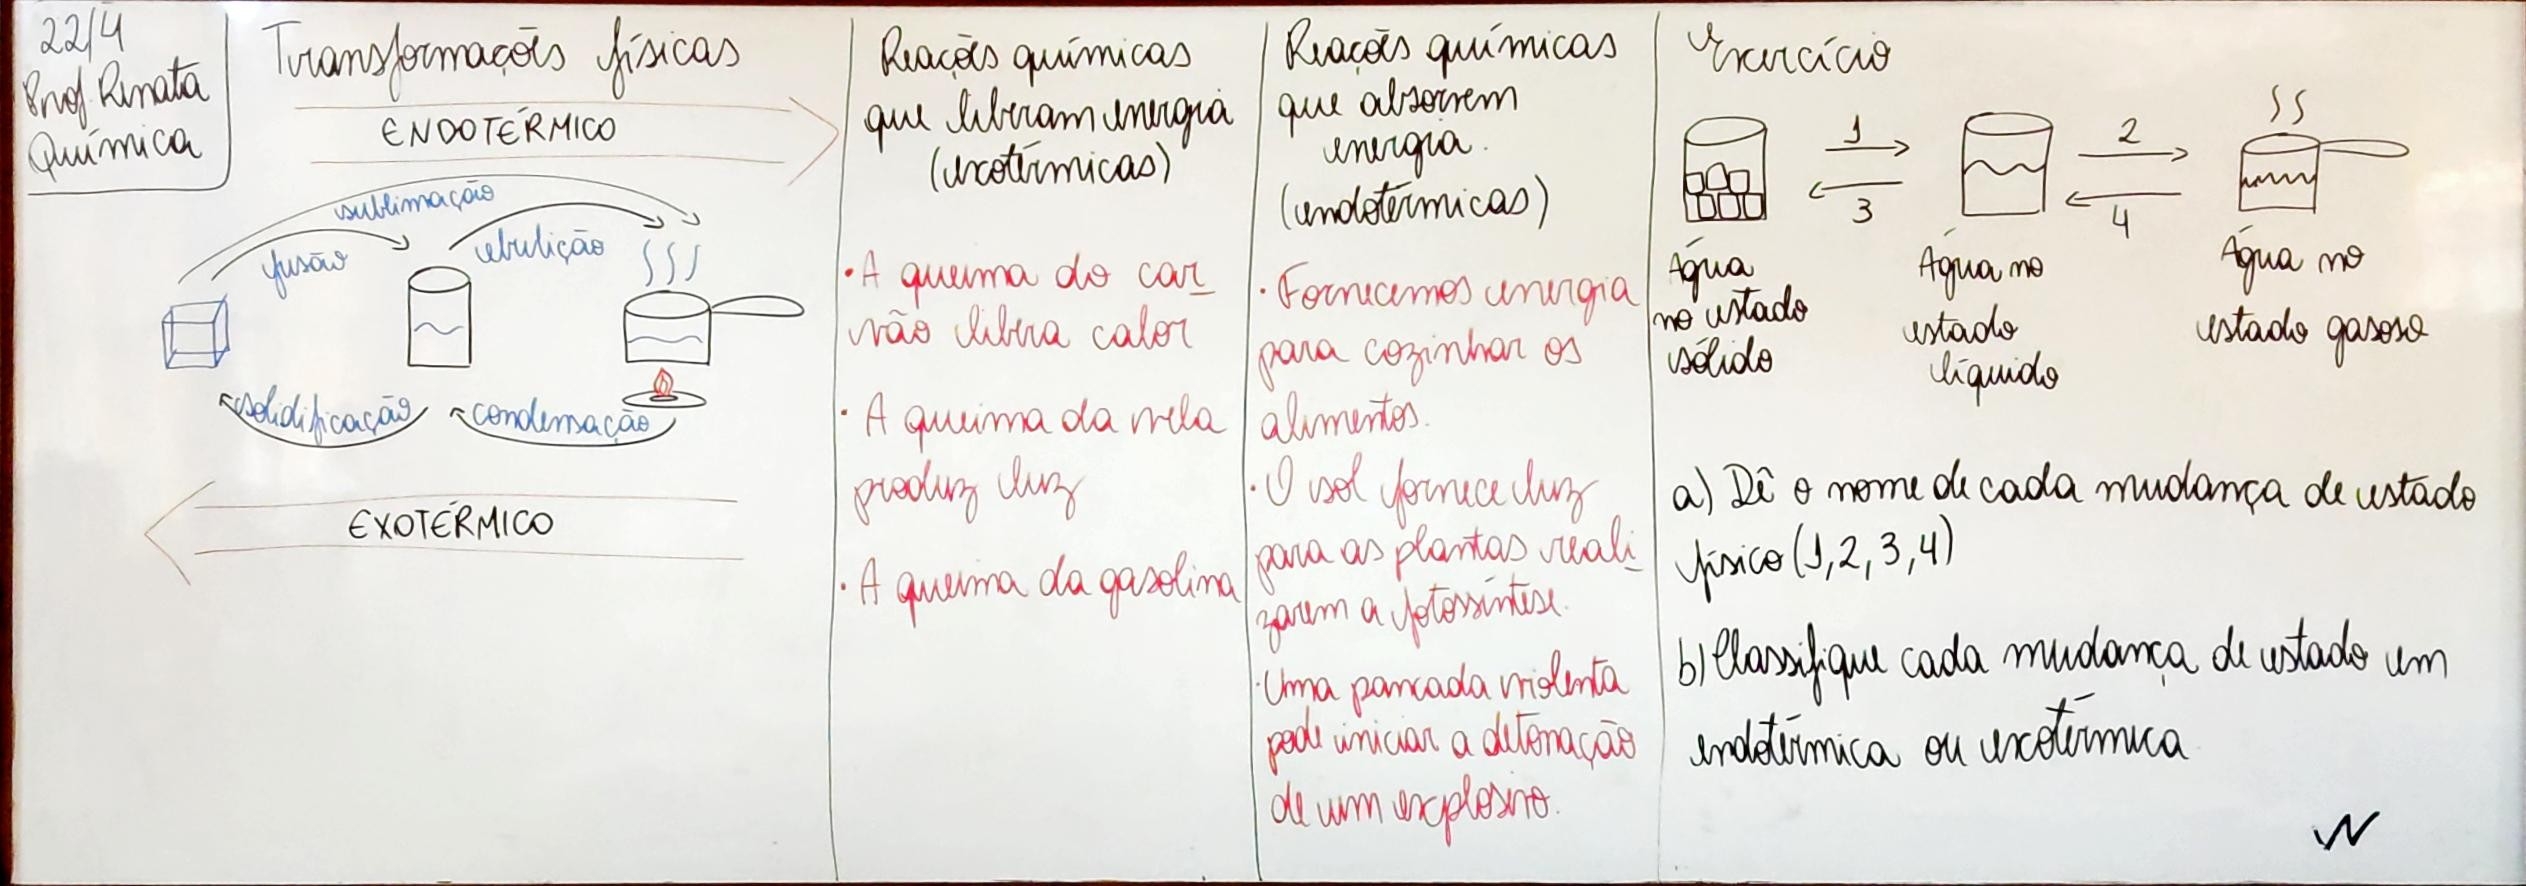 22/4
Prof. Renata
Química
Transformações físicas
ENDOTÉRMICO
sublimação
fusão
ebulição
solidificação
condensação
EXOTÉRMICO
Reações químicas
que liberam energia
(exotérmicas)
• A queima do car-
vão libera calor
• A queima da vela
produz luz
• A queima da gasolina
Reações químicas
que absorvem
energia.
(endotérmicas)
• Fornecemos energia
para cozinhar os
alimentos.
• O sol fornece luz
para as plantas reali-
zarem a fotossíntese.
• Uma pancada violenta
pode iniciar a detonação
de um explosivo.
Exercício
1
2
3
4
Água
no estado
sólido
Água no
estado
líquido
Água no
estado gasoso
a) Dê o nome de cada mudança de estado
físico (1, 2, 3, 4)
b) Classifique cada mudança de estado em
endotérmica ou exotérmica